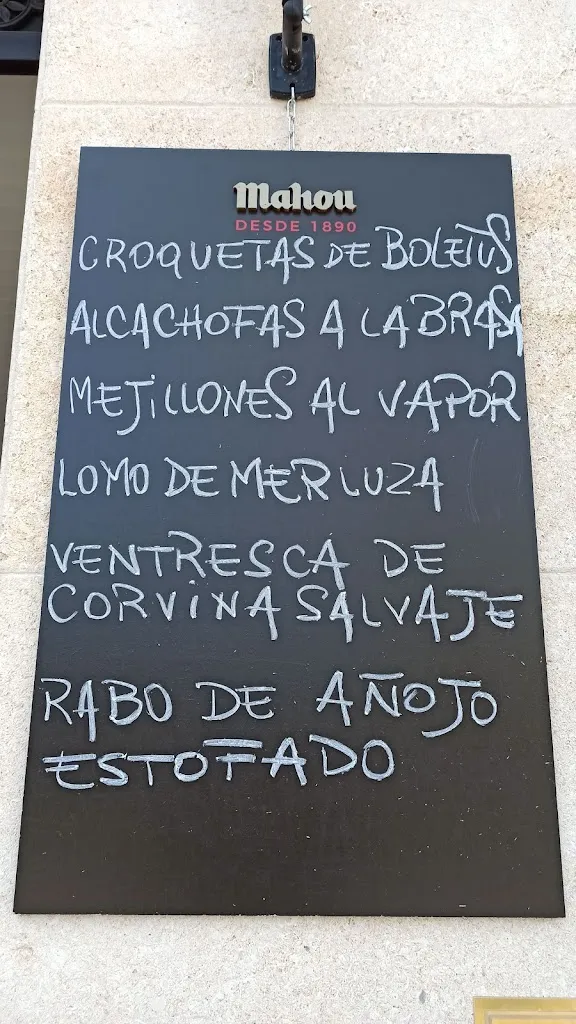 Mahou
DESDE 1890
CROQUETAS DE BOLETUS
ALCACHOFAS A LA BRASA
MEJiLLONES AL VAPOR
LOMO DE MERLUZA
VENTRESCA DE
CORViNA SALVAJE
RABO DE AÑOJO
ESTOFADO